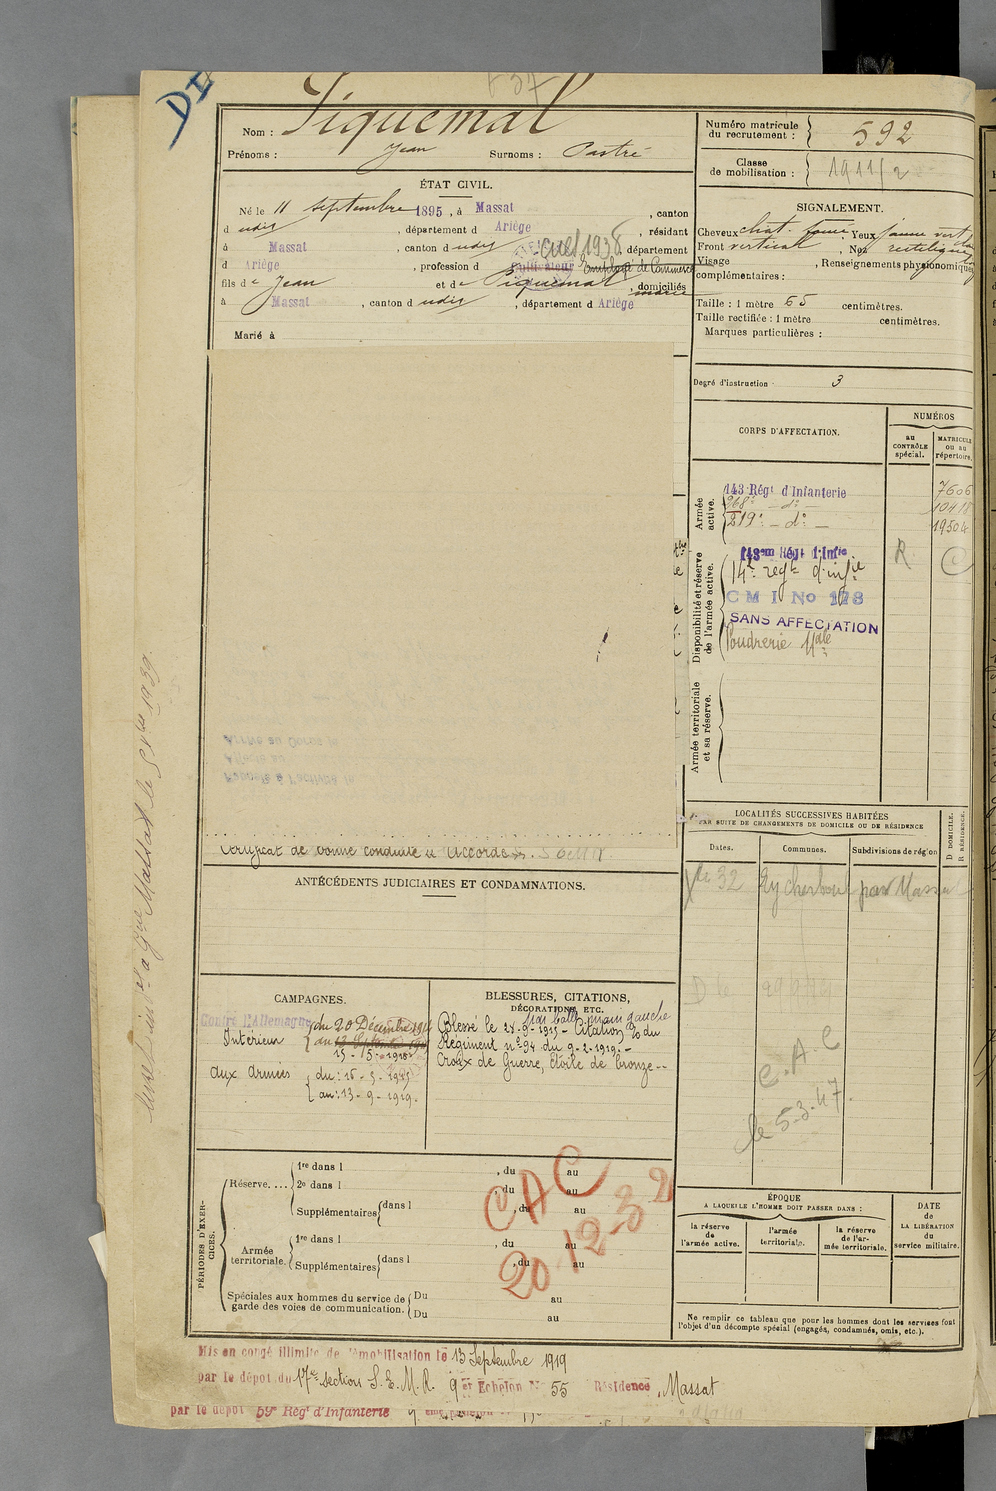 DI
837
Nom : Piquemal
Prénoms : Jean Surnoms : Castré
Numéro matricule du recrutement : 592
Classe de mobilisation : 1911/2
ÉTAT CIVIL.
Né le 11 septembre 1895, à Massat, canton
d udit, département d Ariège, résidant
à Massat, canton d udit, département
cult 1938
d Ariège, profession d Cultivateur Employé de Commerce
fils de Jean et de Piquemal Marie, domiciliés
à Massat, canton d udit, département d Ariège
Marié à
SIGNALEMENT.
Cheveux chat. foncé, Yeux jaune vert
Front vertical, Nez rectiligne
Visage , Renseignements physionomiques
complémentaires :
Taille : 1 mètre 65 centimètres.
Taille rectifiée : 1 mètre centimètres.
Marques particulières :
Degré d'instruction 3
CORPS D'AFFECTATION.
NUMÉROS
au CONTRÔLE spécial.
MATRICULE OU au répertoire.
Armée active.
143 Régt d'Infanterie 7606
268e - do - 10418
219e - do - 19504
Disponibilité et réserve de l'armée active.
143em Régt d'Infie R C
14e régt d'infie
C M I No 178
SANS AFFECTATION
Poudrerie Nale
Armée territoriale et sa réserve.
Arrivé au Corps le
Affecté au
Rappelé à l'activité le
Certificat de bonne conduite "Accordé".
LOCALITÉS SUCCESSIVES HABITÉES
PAR SUITE DE CHANGEMENTS DE DOMICILE OU DE RÉSIDENCE
Dates.
Communes.
Subdivisions de région
D DOMICILE.
R RÉSIDENCE.
32 Eycherboul par Massat
C.A.C
le 5-3-47.
ANTÉCÉDENTS JUDICIAIRES ET CONDAMNATIONS.
CAMPAGNES.
Contre l'Allemagne du 20 Décembre 1914
Intérieur au 13 Septembre 1919
15-5-1915
aux armées du : 16-5-1915
au : 13-9-1919.
BLESSURES, CITATIONS, DÉCORATIONS, ETC.
par balle main gauche
Blessé le 28-9-1915 - Citation, O du
Régiment n° 94 du 9-2-1919. -
Croix de Guerre, étoile de bronze --
PÉRIODES D'EXERCICES.
Réserve.... 1re dans l , du au
2e dans l , du au
Supplémentaires dans l , du au
Armée territoriale. 1re dans l , du au
Supplémentaires dans l , du au
Spéciales aux hommes du service de garde des voies de communication. Du au
Du au
CAC
20-12-32
ÉPOQUE
A LAQUELLE L'HOMME DOIT PASSER DANS :
la réserve de l'armée active.
l'armée territoriale.
la réserve de l'armée territoriale.
DATE de LA LIBÉRATION du service militaire.
Ne remplir ce tableau que pour les hommes dont les services font
l'objet d'un décompte spécial (engagés, condamnés, omis, etc.).
Mis en congé illimité de démobilisation le 13 Septembre 1919
par le dépôt du 17e section S. E. M. R. 9 er Echelon No 55 Résidence, Massat
par le dépôt 59e Régt d'Infanterie